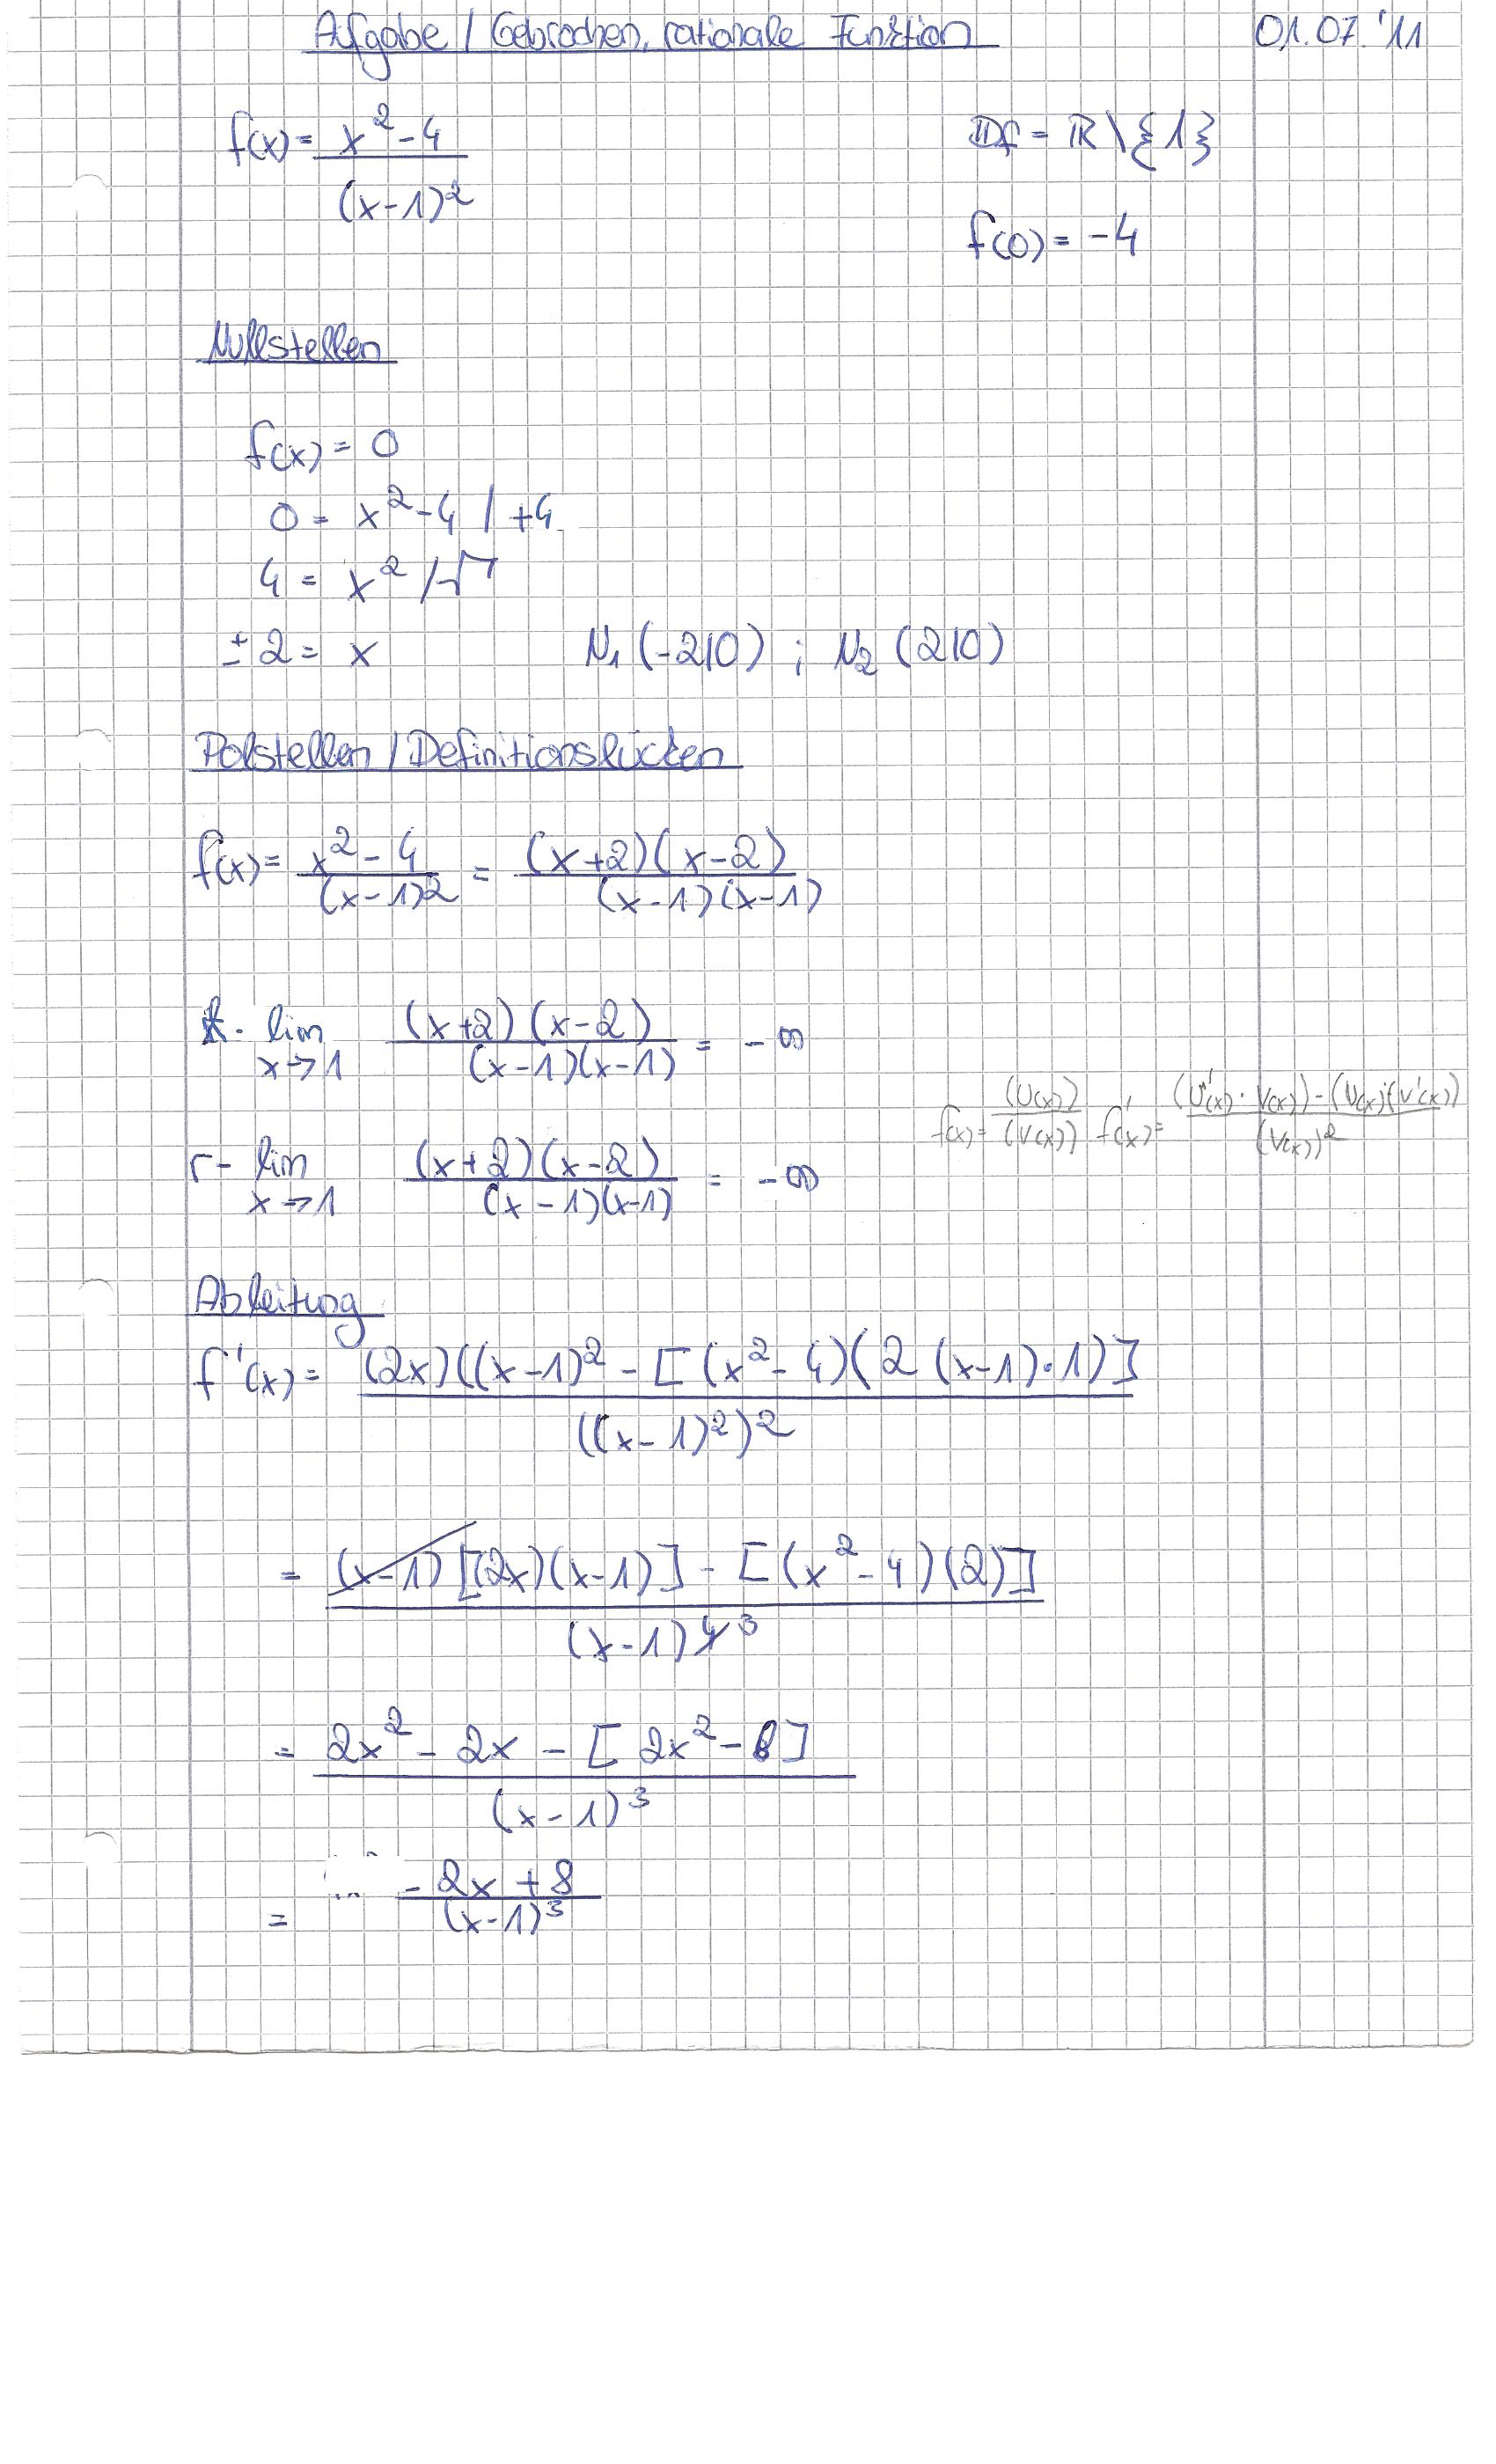 Afgabe / Gebrochen, rationale Funktion 01.07.'11
f(x) = (x² - 4) / (x-1)² Df = ℝ \ {1}
f(0) = -4
Nullstellen
f(x) = 0
0 = x² - 4 / +4
4 = x² / √
± 2 = x N₁ (-2|0) ; N₂ (2|0)
Polstellen / Definitionslücken
f(x) = (x² - 4) / (x-1)² = (x+2)(x-2) / (x-1)(x-1)
l - lim x→1 (x+2)(x-2) / (x-1)(x-1) = -∞
f(x) = (U(x)) / (V(x)) f'(x) = (U'(x) · V(x)) - (U(x)·(V'(x)) / (V(x))²
r - lim x→1 (x+2)(x-2) / (x-1)(x-1) = -∞
Ableitung
f'(x) = (2x)((x-1)² - [(x² - 4)(2 (x-1)·1)] / ((x-1)²)²
= (x-1) [(2x)(x-1)] - [(x² - 4)(2)] / (x-1)⁴ ³
= 2x² - 2x - [2x² - 8] / (x-1)³
= -2x + 8 / (x-1)³